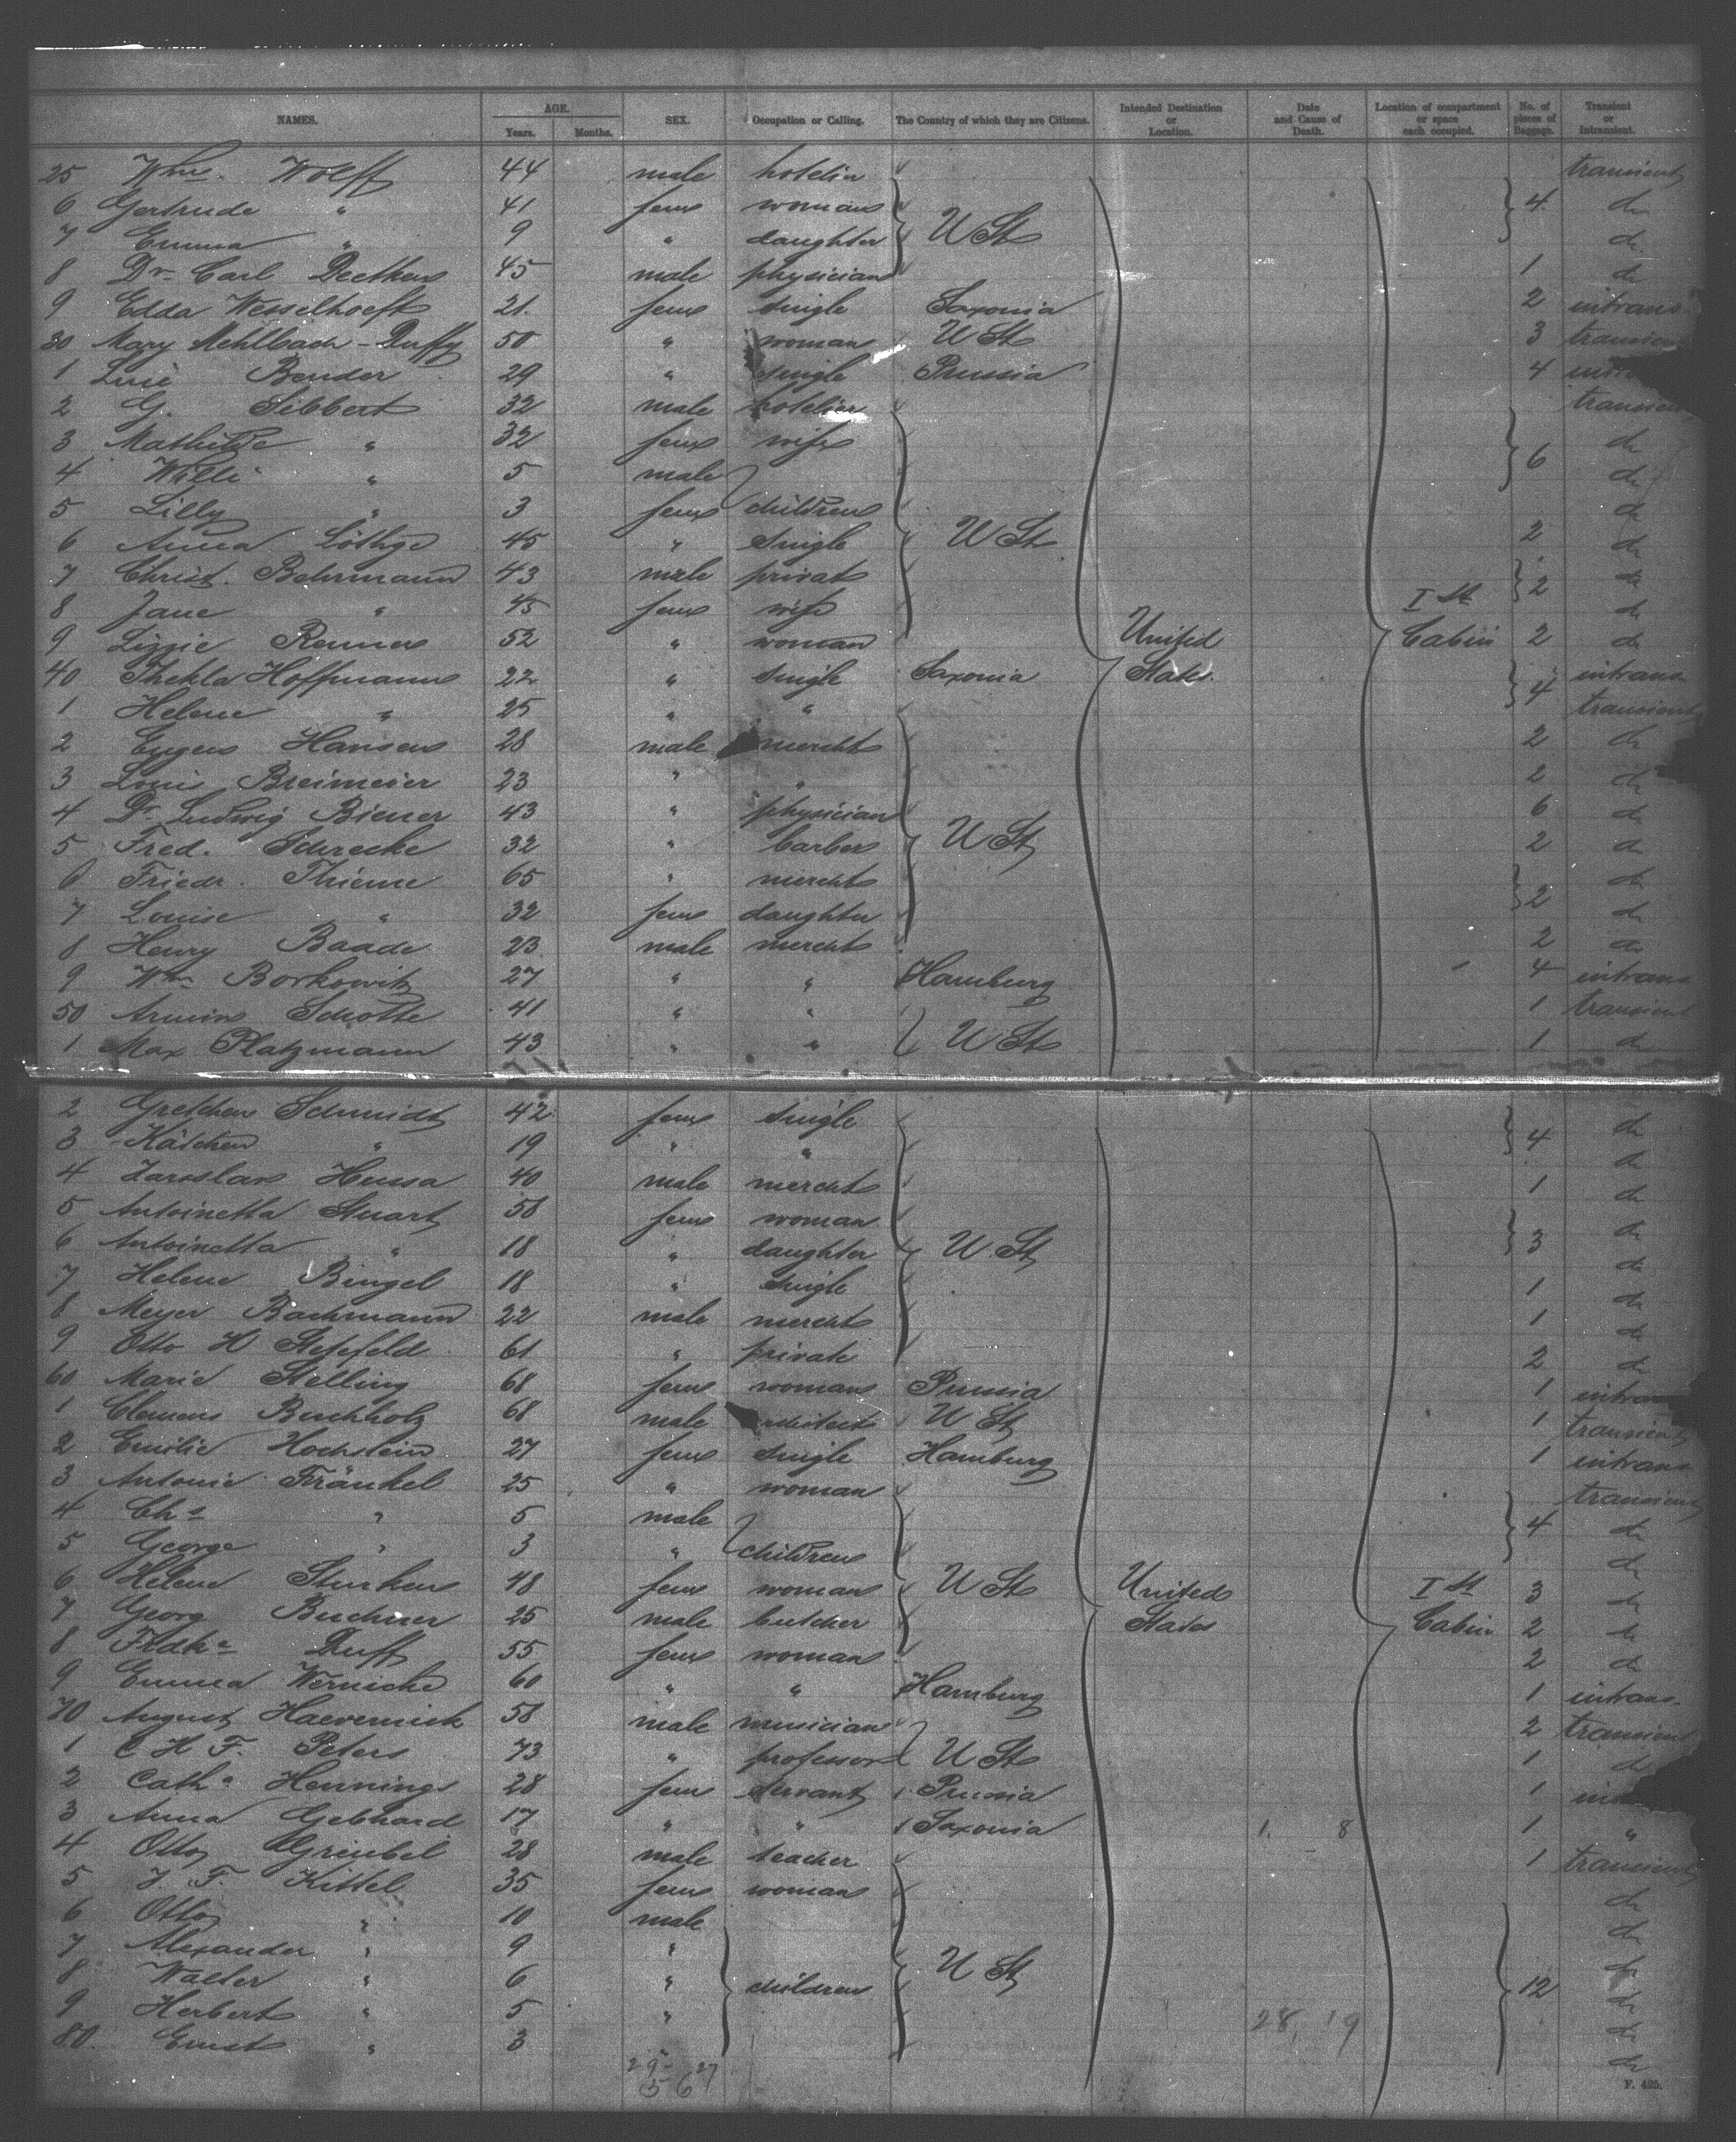 NAMES. AGE. Years. Months. SEX. Occupation or Calling. The Country of which they are Citizens. Intended Destination or Location. Date and Cause of Death. Location of compartment or space each occupied. No. of pieces of Baggage. Transient or Intransient.
25 Wm. Wolff 44 male transient
6 Gertrude " 41 fem woman 4 do
7 Emma " 9 " daughter U St do
8 Dr. Carl Deetken 45 male physician 1 do
9 Edda Wesselhoeft 21. fem single Saxonia 2 intrans.
30 Mary Mehlbach-Duffy 50 " woman U St 3 transient
1 Bender 29 " single Prussia 4
2 G. Sibbert 32 male transient
3 Mathilde " 32 fem wife do
4 Willi " 5 male 6 do
5 Lilly " 3 fem children do
6 Anna Löthge 45 " single U St 2 do
7 Christ. Behrmann 43 male privat 2 do
8 Jane " 45 fem wife I St do
9 Lizzie 52 " woman United Cabin 2 do
40 Thekla Hoffmann 22 " single Saxonia States. intrans.
1 Helene " 25 " " 4 transient
2 Eugen Hansen 28 male mercht 2 do
3 Louis Breimeier 23 " " 2 do
4 Dr. Ludwig Biener 43 " physician 6 do
5 Fred. 32 " barber U St 2 do
6 Friedr. Thieme 65 " mercht do
7 Louise " 32 fem daughter 2 do
8 Henry Baade 23 male mercht 2 do
9 Wm Borkowitz 27 " " Hamburg 4 intrans
50 Armin Schotte 41 " " 1 transient
1 Max Platzmann 43 " " U St 1 do
2 Gretchen Schmidt 42 fem single do
3 Kätchen " 19 " " 4 do
4 Jaroslav 40 male mercht 1 do
5 Antoinetta Stuart 58 fem woman do
6 Antoinetta " 18 " daughter U. St 3 do
7 Helene Bingel 18 " single 1 do
8 Meyer Bachmann 22 male mercht 1 do
9 Otto H Stetefeld 61 " private 2 do
60 Marie Stelling 68 fem woman Prussia 1 intrans
1 Clemens Buchholz 68 male U St 1 transient
2 Emilie Hochstein 27 fem single Hamburg 1 intrans
3 Antonie Fränkel 25 " woman transient
4 Chs " 5 male 4 do
5 George " 3 " children do
6 Helene Sturken 48 fem woman U St United I St 3 do
7 Georg Buchner 25 male butcher States Cabin 2 do
8 Fredke Ruff 55 fem woman 2 do
9 Emma Wernicke 60 " " Hamburg 1 intrans.
70 August Haevernick 58 male musician 2 transient
1 C H F. Peters 73 " professor U St 1 do
2 Cath. Hennings 28 fem servant Prussia 1
3 Anna Gebhard 17 " " Saxonia 1. 8 1 "
4 Otto Greubel 28 male teacher 1 transient
5 J. F. Kittel 35 fem woman do
6 Otto " 10 male do
7 Alexander " 9 " U St do
8 Walter " 6 " children 12 do
9 Herbert " 5 " 28, 19 do
80. Ernst " 3 " do
29 27
5 6
F. 425.